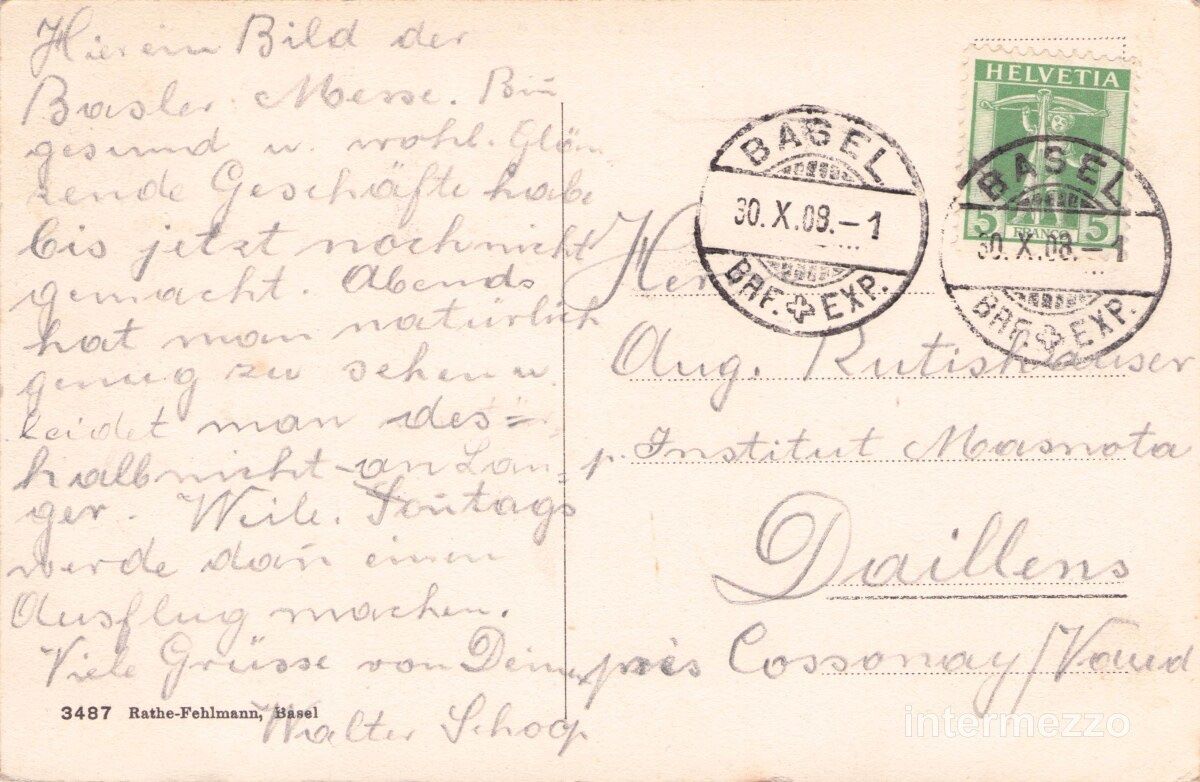 Hier ein Bild der
Basler Messe. Bin
gesund u. wohl. Glän
zende Geschäfte habe
bis jetzt noch nicht
gemacht. Abends
hat man natürlich
genug zu sehen u.
leidet man des=
halb nicht an Lan-
ger. Weile. Soñtags
werde dañ einen
Ausflug machen.
Viele Grüsse von Deinem
Walter Schoop
3487 Rathe-Fehlmann, Basel
HELVETIA
5 FRANCO 5
BASEL
30.X.09.-1
BRF. EXP.
BASEL
30.X.09.-1
BRF. EXP.
Herr
Aug. Rutishauser
p. Institut Masnota
Daillens
près Cossonay/Vaud
intermezzo